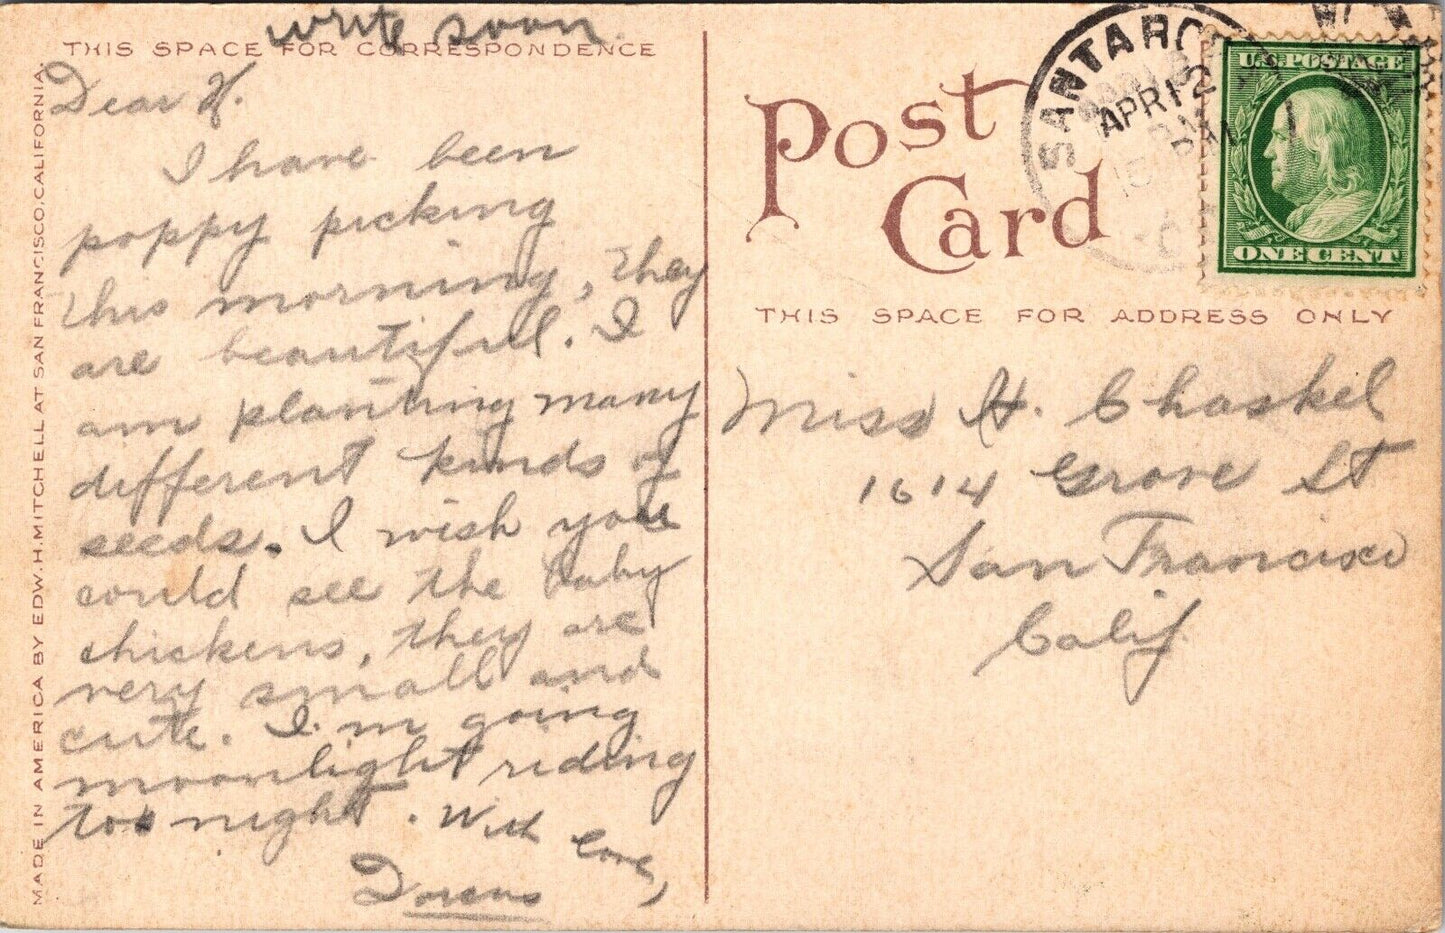 write soon.
THIS SPACE FOR CORRESPONDENCE
Dear H.
I have been
poppy picking
this morning, they
are beautiful. I
am planting many
different kinds of
seeds. I wish you
could see the baby
chickens, they are
very small and
cute. I'm going
moonlight riding
to night. With love,
MADE IN AMERICA BY EDW. H. MITCHELL AT SAN FRANCISCO, CALIFORNIA.
Post
Card
SANTA RO
APR 12
U.S. POSTAGE
ONE CENT
THIS SPACE FOR ADDRESS ONLY
Miss H. Chaskel
1614 Grove St
San Francisco
Calif